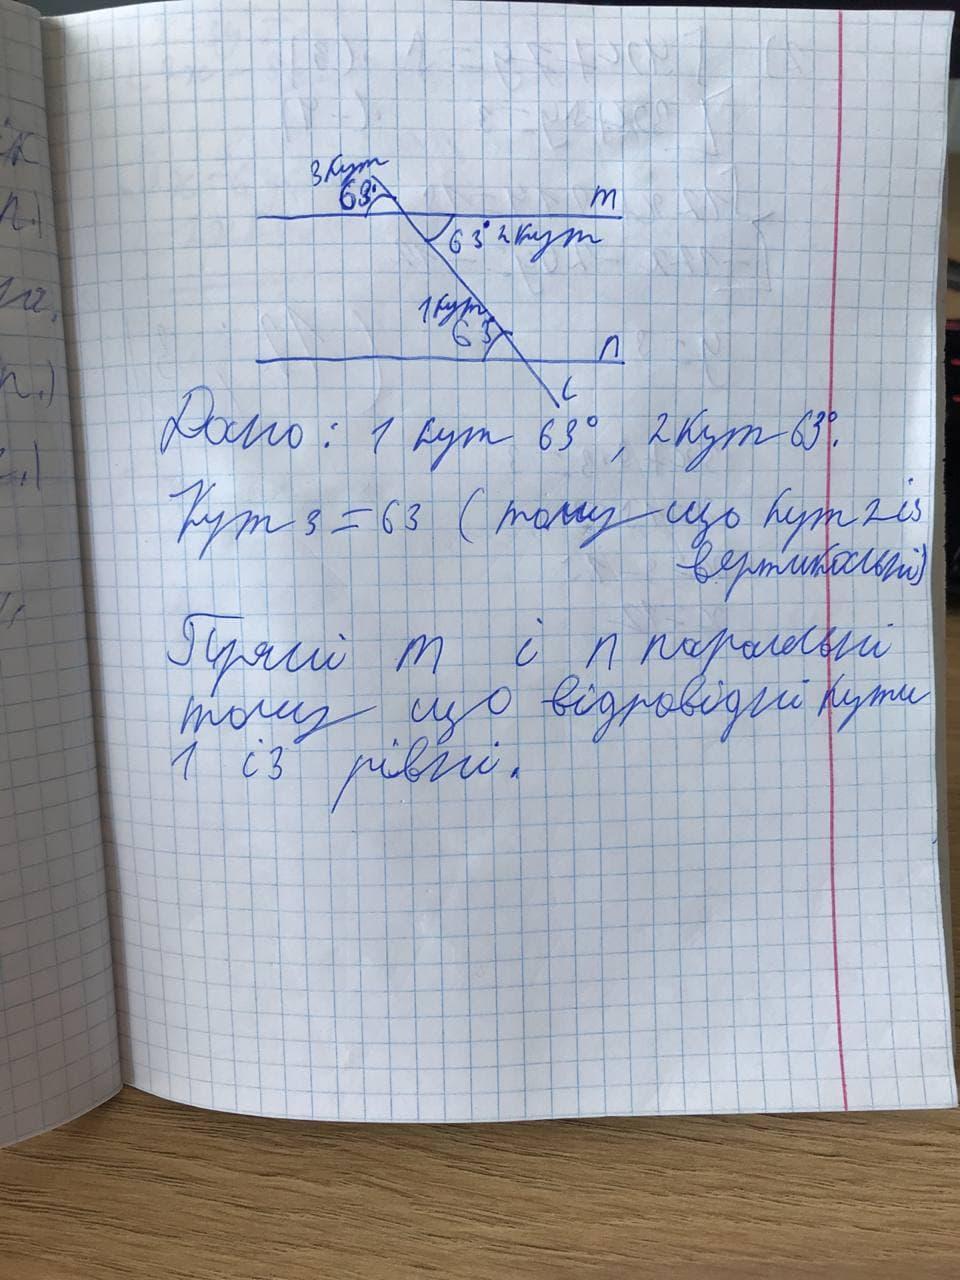 3 кут
63°
m
63° 2 кут
1 кут
63
n
c
Дано: 1 кут 63°, 2 кут 63°.
Кут 3 = 63 (тому що кут 2 і 3
вертикальні)
Прямі m і n паралельні
тому що відповідні кути
1 і 3 рівні.